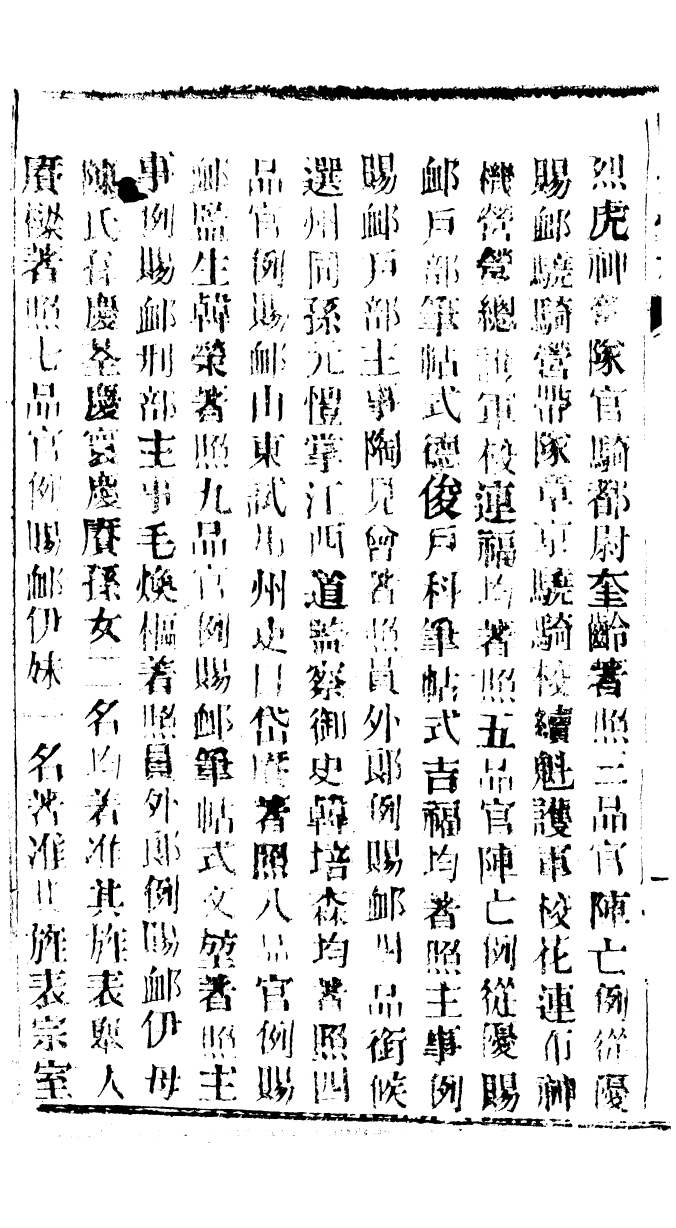 烈虎神營隊官騎都尉奎齡著照三品官陣亡例從優
賜卹驍騎營帶隊章京驍騎校續魁護軍校花連布神
機營營總護軍校連福均著照五品官陣亡例從優賜
卹戶部筆帖式德俊戶科筆帖式吉福均著照主事例
賜卹戶部主事陶見曾著照員外郎例賜卹四品銜候
選州同孫元愷掌江西道監察御史韓培森均著照四
品官例賜卹山東試用州吏目岱齡著照八品官例賜
卹監生韓榮著照九品官例賜卹筆帖式文堃著照主
事例賜卹刑部主事毛煥樞著照員外郎例賜卹伊母
陳氏侄慶荃慶寰慶賡孫女二名均著准其旌表舉人
賡樑著照七品官例賜卹伊妹一名著准其旌表宗室